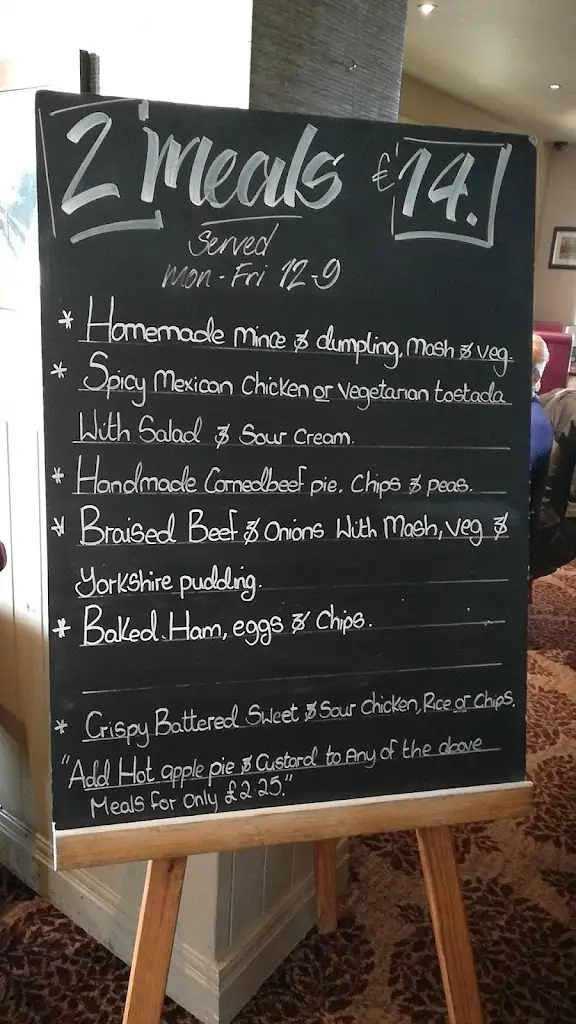 2 meals €14.
Served
mon-Fri 12-9
* Homemade Mince & dumpling, Mash & veg.
* Spicy Mexican Chicken or Vegetarian tostada
With Salad & Sour Cream.
* Handmade Cornedbeef pie, Chips & peas.
* Braised Beef & Onions With Mash, veg &
Yorkshire pudding.
* Baked Ham, eggs & Chips.
* Crispy Battered Sweet & Sour Chicken, Rice or Chips.
"Add Hot apple pie & Custard to Any of the above
Meals for Only £2.25."